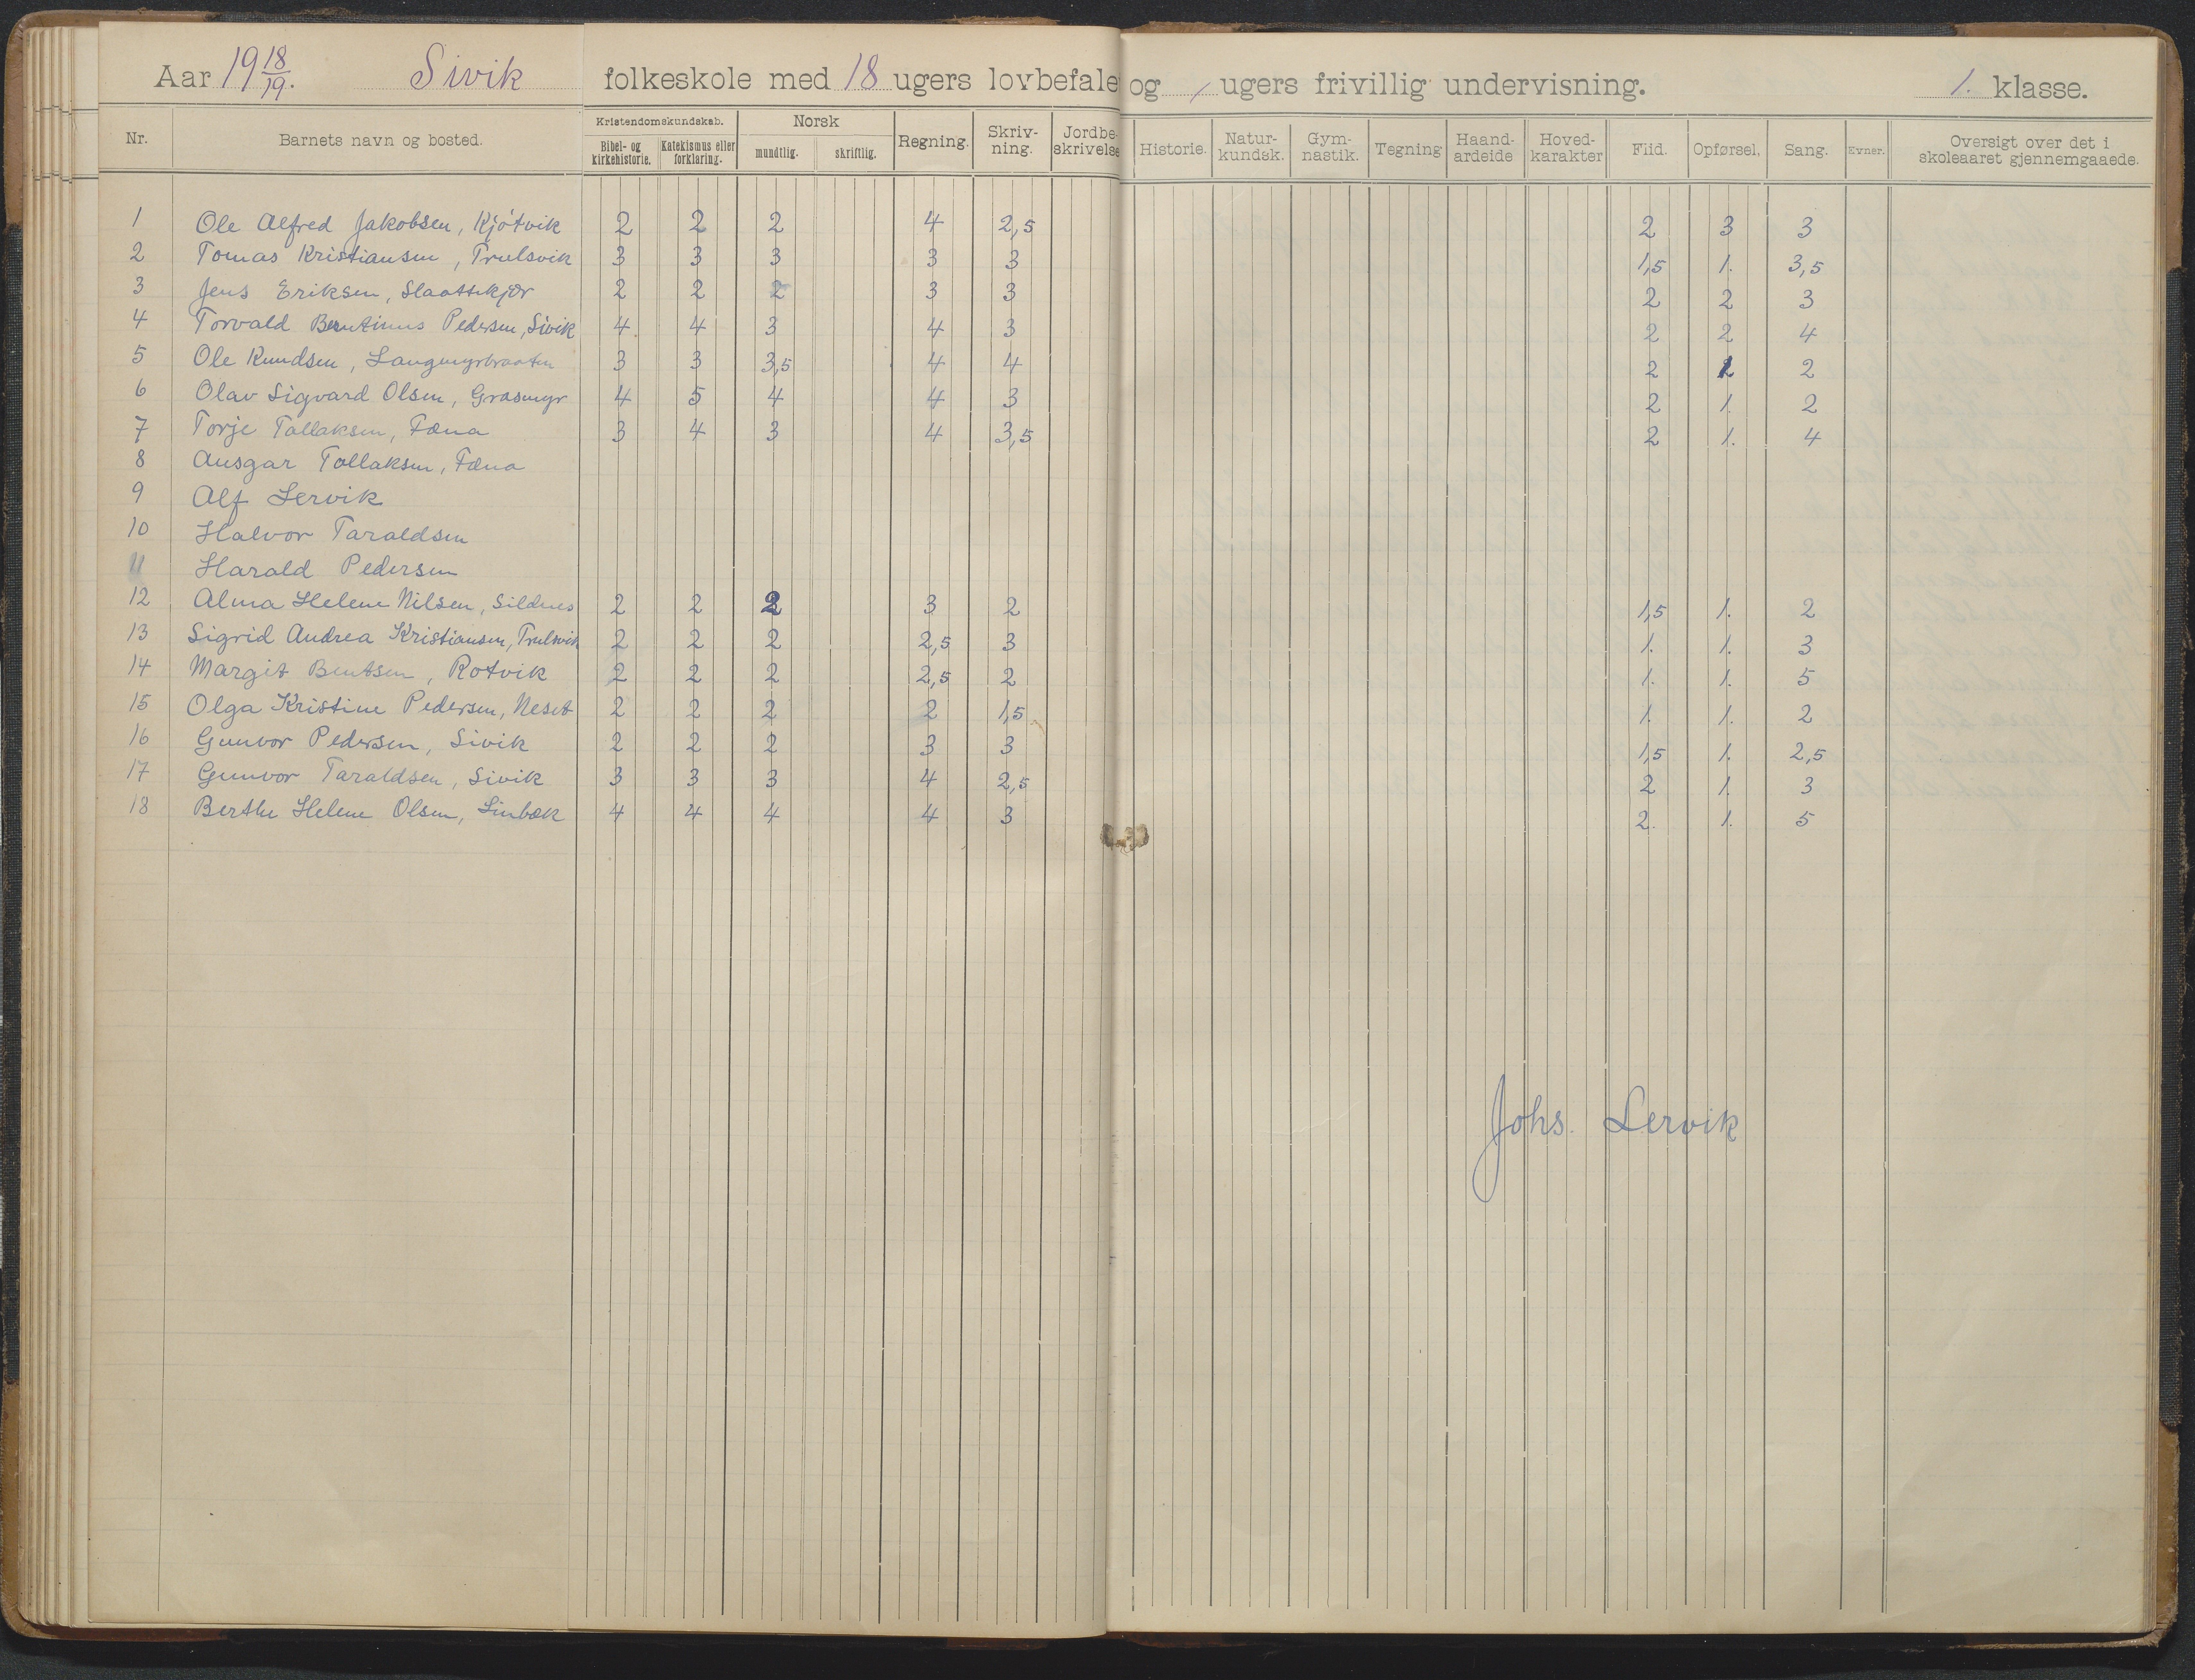 Aar 19 18/19. Sivik folkeskole med 18 ugers lovbefale og / ugers frivillig undervisning. 1. klasse.
Nr. Barnets navn og bosted. Kristendomskundskab. Bibel- og kirkehistorie. Katekismus eller forklaring. Norsk mundtlig. skriftlig. Regning. Skriv-ning. Jordbe-skrivelse Historie. Natur-kundsk. Gym-nastik. Tegning Haand-arbeide Hoved-karakter Flid. Opførsel. Sang. Evner. Oversigt over det i skoleaaret gjennemgaaede.
1 Ole Alfred Jakobsen, Kjøtvik 2 2 2 4 2,5 2 3 3
2 Tomas Kristiansen, Trulsvik 3 3 3 3 3 1,5 1. 3,5
3 Jens Eriksen, Slaattekjær 2 2 2 3 3 2 2 3
4 Torvald Berntinus Pedersen, Sivik 4 4 3 4 3 2 2 4
5 Ole Knudsen, Langmyrbraaten 3 3 3,5 4 4 2 2 2
6 Olav Sigvard Olsen, Grasmyr 4 5 4 4 3 2 1. 2
7 Torje Tallaksen, Fæna 3 4 3 4 3,5 2 1. 4
8 Ansgar Tallaksen, Fæna
9 Alf Lervik
10 Halvor Taraldsen
11 Harald Pedersen
12 Alma Helene Nilsen, Sildnes 2 2 2 3 2 1,5 1. 2
13 Sigrid Andrea Kristiansen, Trulsvik 2 2 2 2,5 3 1. 1. 3
14 Margit Bentsen, Rotvik 2 2 2 2,5 2 1. 1. 5
15 Olga Kristine Pedersen, Neset 2 2 2 2 1,5 1. 1. 2
16 Gunvor Pedersen, Sivik 2 2 2 3 3 1,5 1. 2,5
17 Gunvor Taraldsen, Sivik 3 3 3 4 2,5 2 1. 3
18 Berthe Helene Olsen, Linbæk 4 4 4 4 3 2. 1. 5
Johs. Lervik